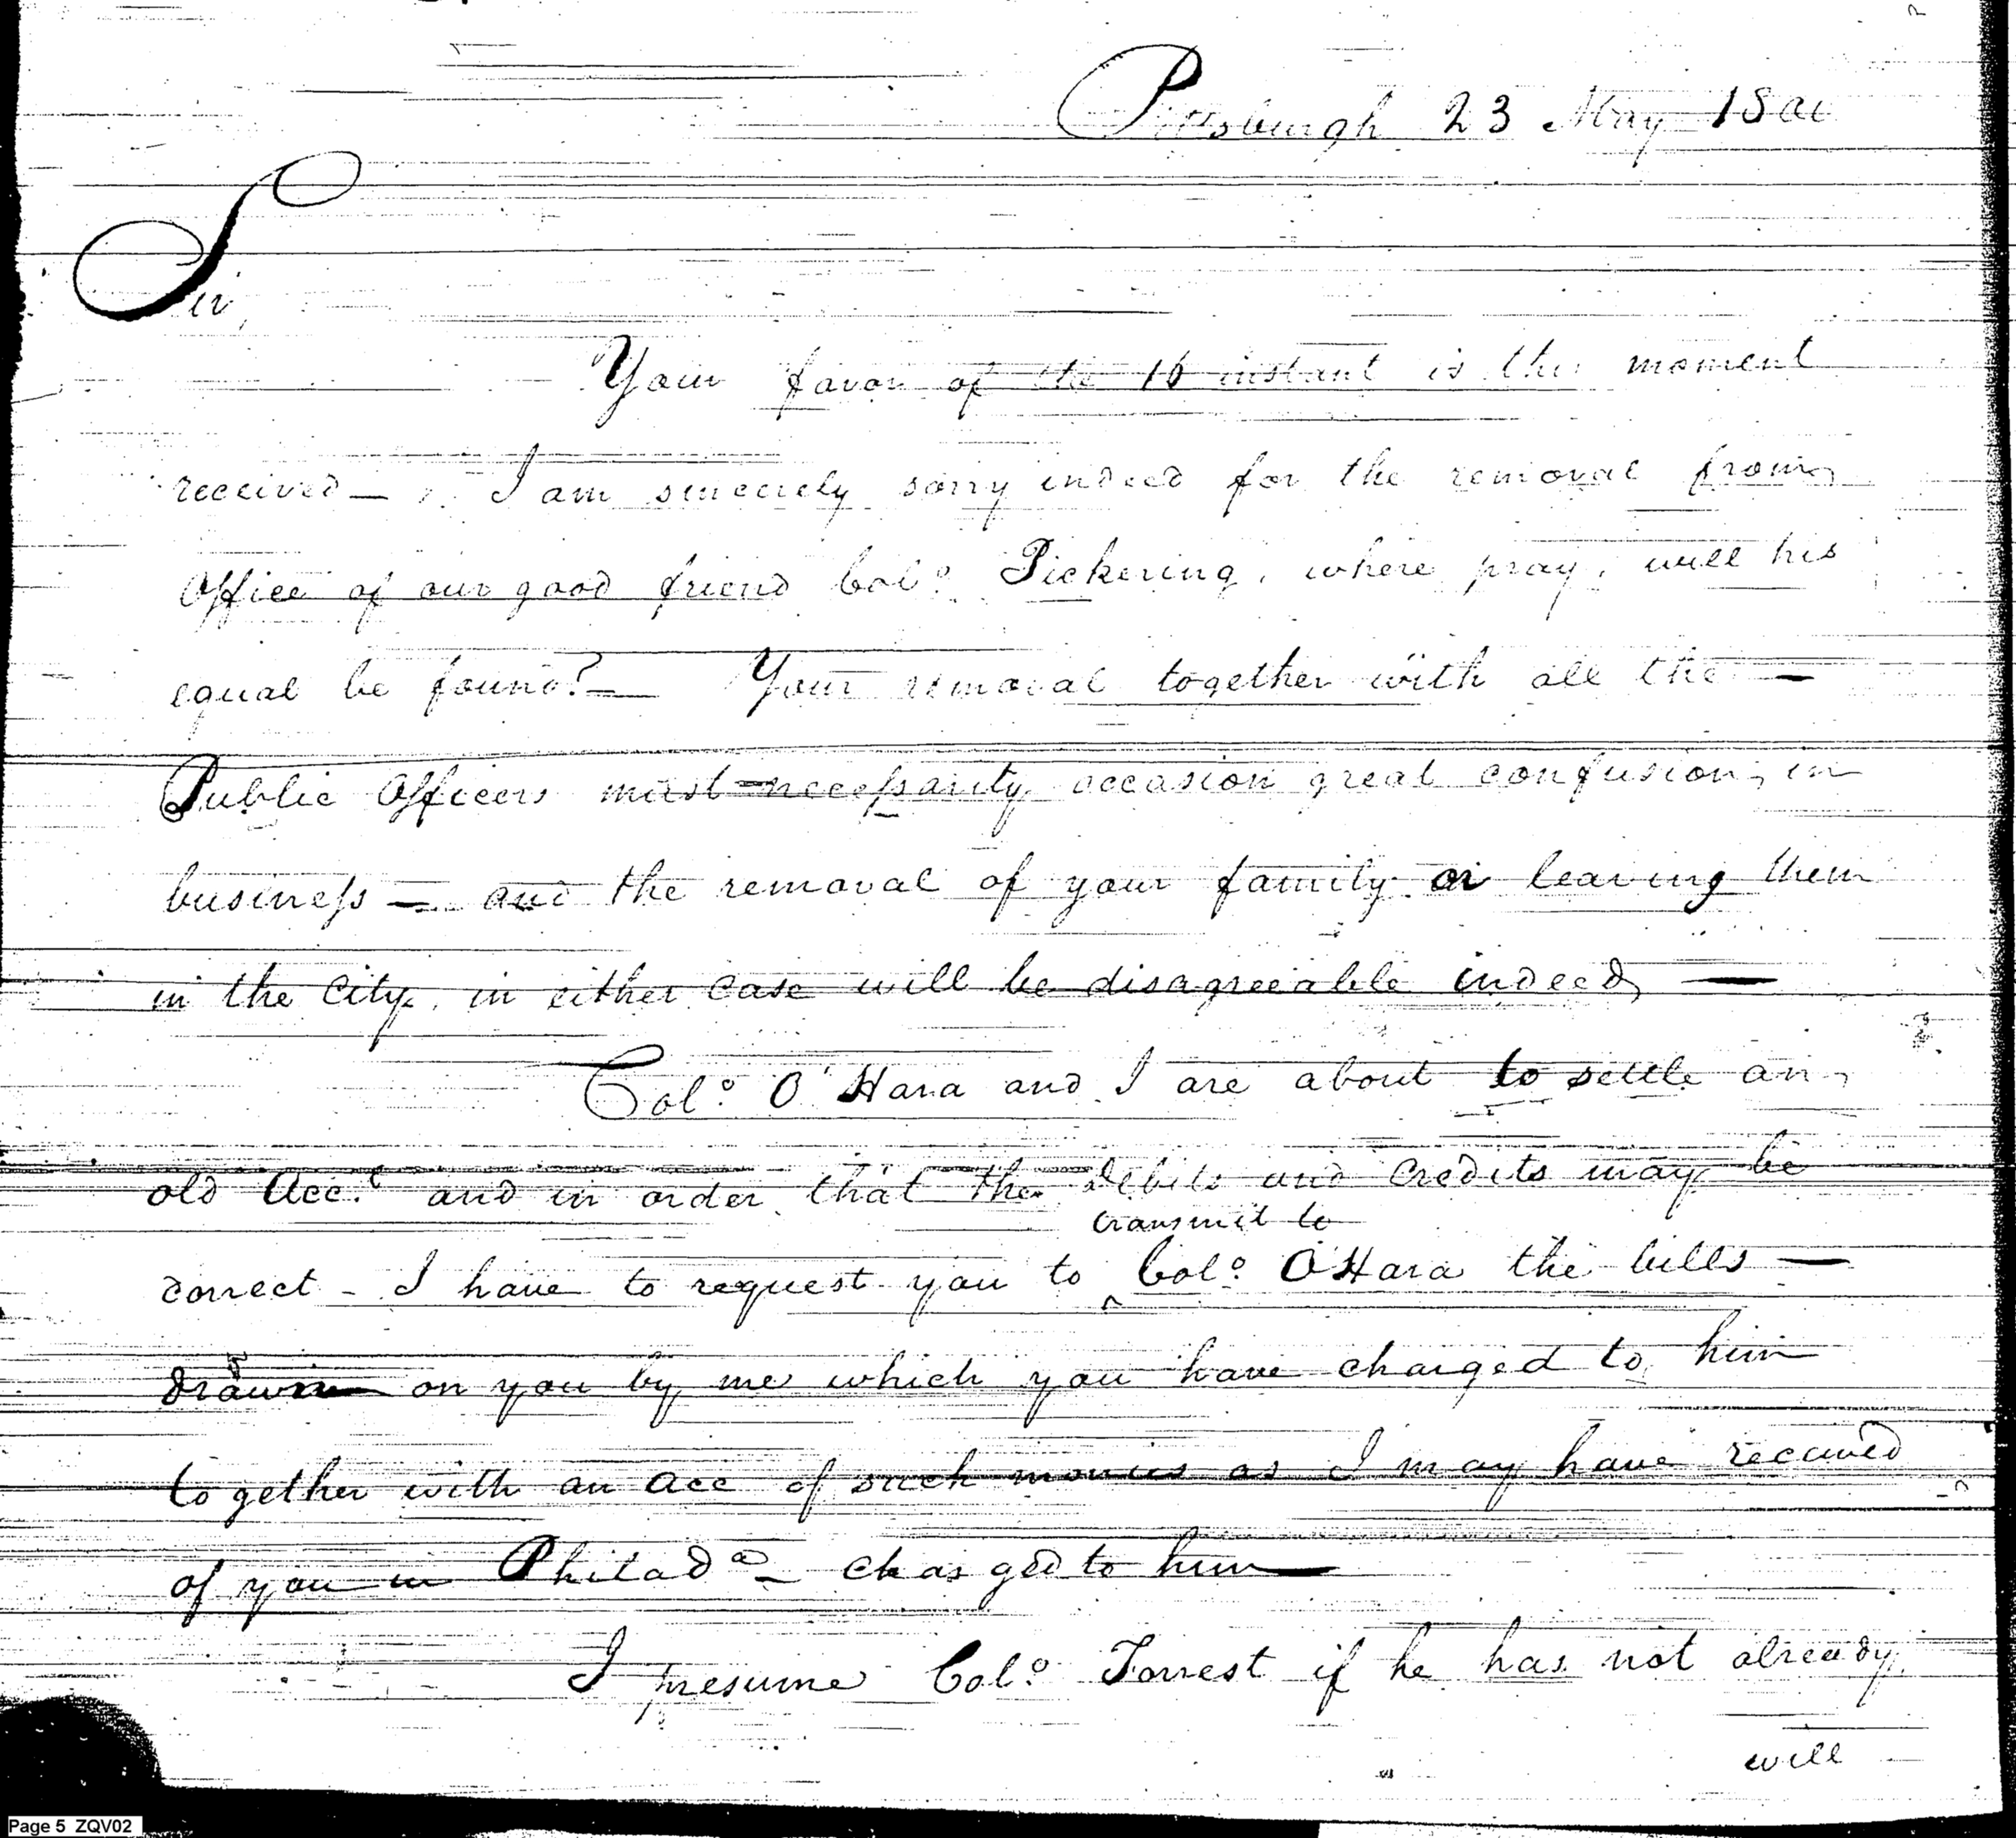 Pittsburgh 23 May 1800
Sir,
Your favor of the 16 instant is this moment
received — I am sincerely sorry indeed for the removal from
Office of our good friend Colo. Pickering, where, pray, will his
equal be found? — Your removal together with all the —
Public Officers must necessarily occasion great confusion, in
business — and the removal of your family or leaving them
in the City, in either case will be disagreeable indeed, —
Colo. O'Hara and I are about to settle an
old Acct. and in order that the debits and Credits may be
transmit to
correct - I have to request you to ^ Colo. O'Hara the bills —
drawn on you by me which you have charged to him
together with an acc of such monies as I may have received
of you in Philada — charged to him —
I presume Colo. Forrest if he has not already
will
Page 5 ZQV02